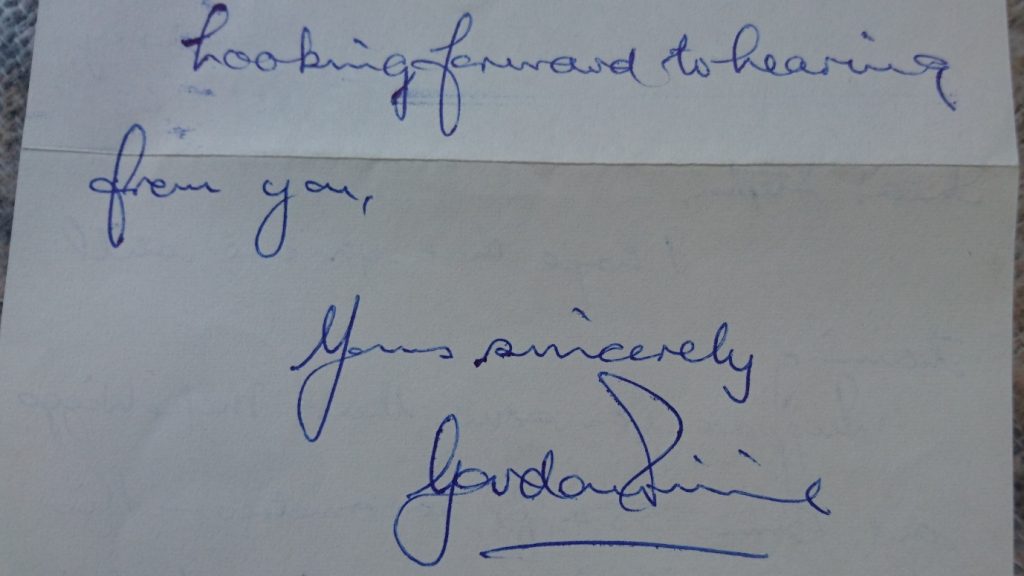 Looking forward to hearing
from you,
Yours sincerely
Gordon